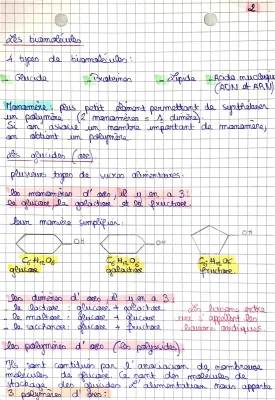 2
Les biomolécules
4 types de biomolécules :
- Glucide - Protéines - Lipide - Acide nucléique
(ADN et ARN)
Monomère : plus petit élément permettant de synthétiser
un polymère (2 monomères = 1 dimère).
Si on associe un nombre important de monomère,
on obtient un polymère.
Les glucides (oses)
plusieurs types de sucres alimentaires :
les monomères d'oses, il y en a 3 :
le glucose la galactose et le fructose.
leur manière simplifiée :
OH OH OH
C6H12O6 C6H12O6 C6H12O6
glucose galactose fructose
les dimères d'oses, il y en a 3 :
- le lactose : glucose + galactose
- le maltose : glucose + glucose
- le saccharose : glucose + fructose
Les liaisons entre
oses s'appellent les
liaisons osidiques
les polymères d'oses (les polyosides) :
Ils sont constitués par l'association de nombreuses
molécules de glucose. Ce sont des molécules de
stockage des glucides. L'alimentation nous apporte
3 polymères d'oses :